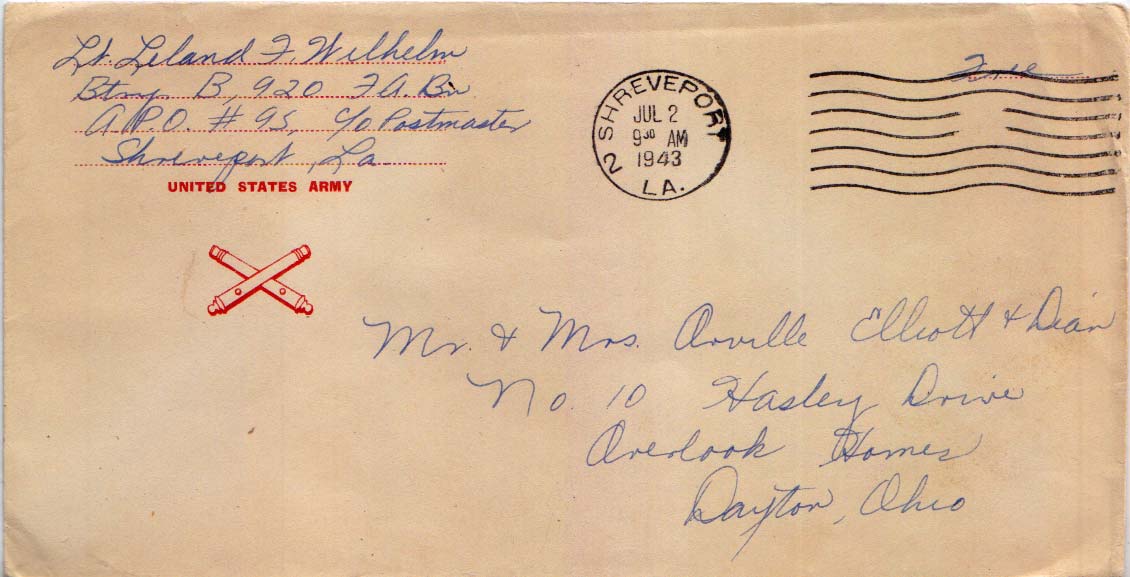 Lt. Leland F Wilhelm
Btry B, 920 F A. Bn
A.P.O. # 95, c/o Postmaster
Shreveport, La.
UNITED STATES ARMY
2 SHREVEPORT
JUL 2
9 30 AM
1943
LA.
Free
Mr. & Mrs. Orville Elliott & Dian
No. 10 Hasley Drive
Overlook Homes
Dayton, Ohio